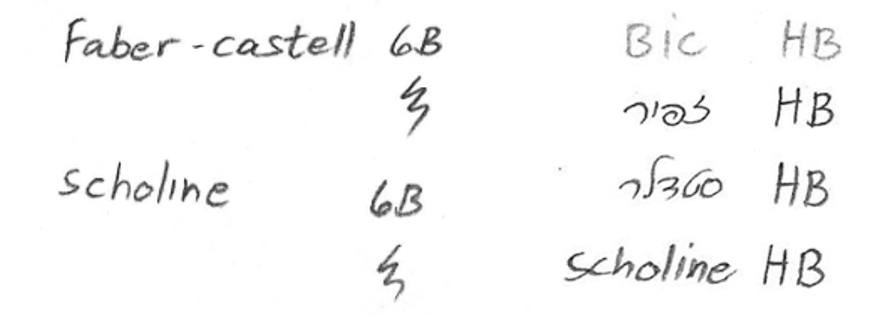 Faber-castell 6B
Bic HB
זפיר HB
scholine 6B
סטדלר HB
scholine HB